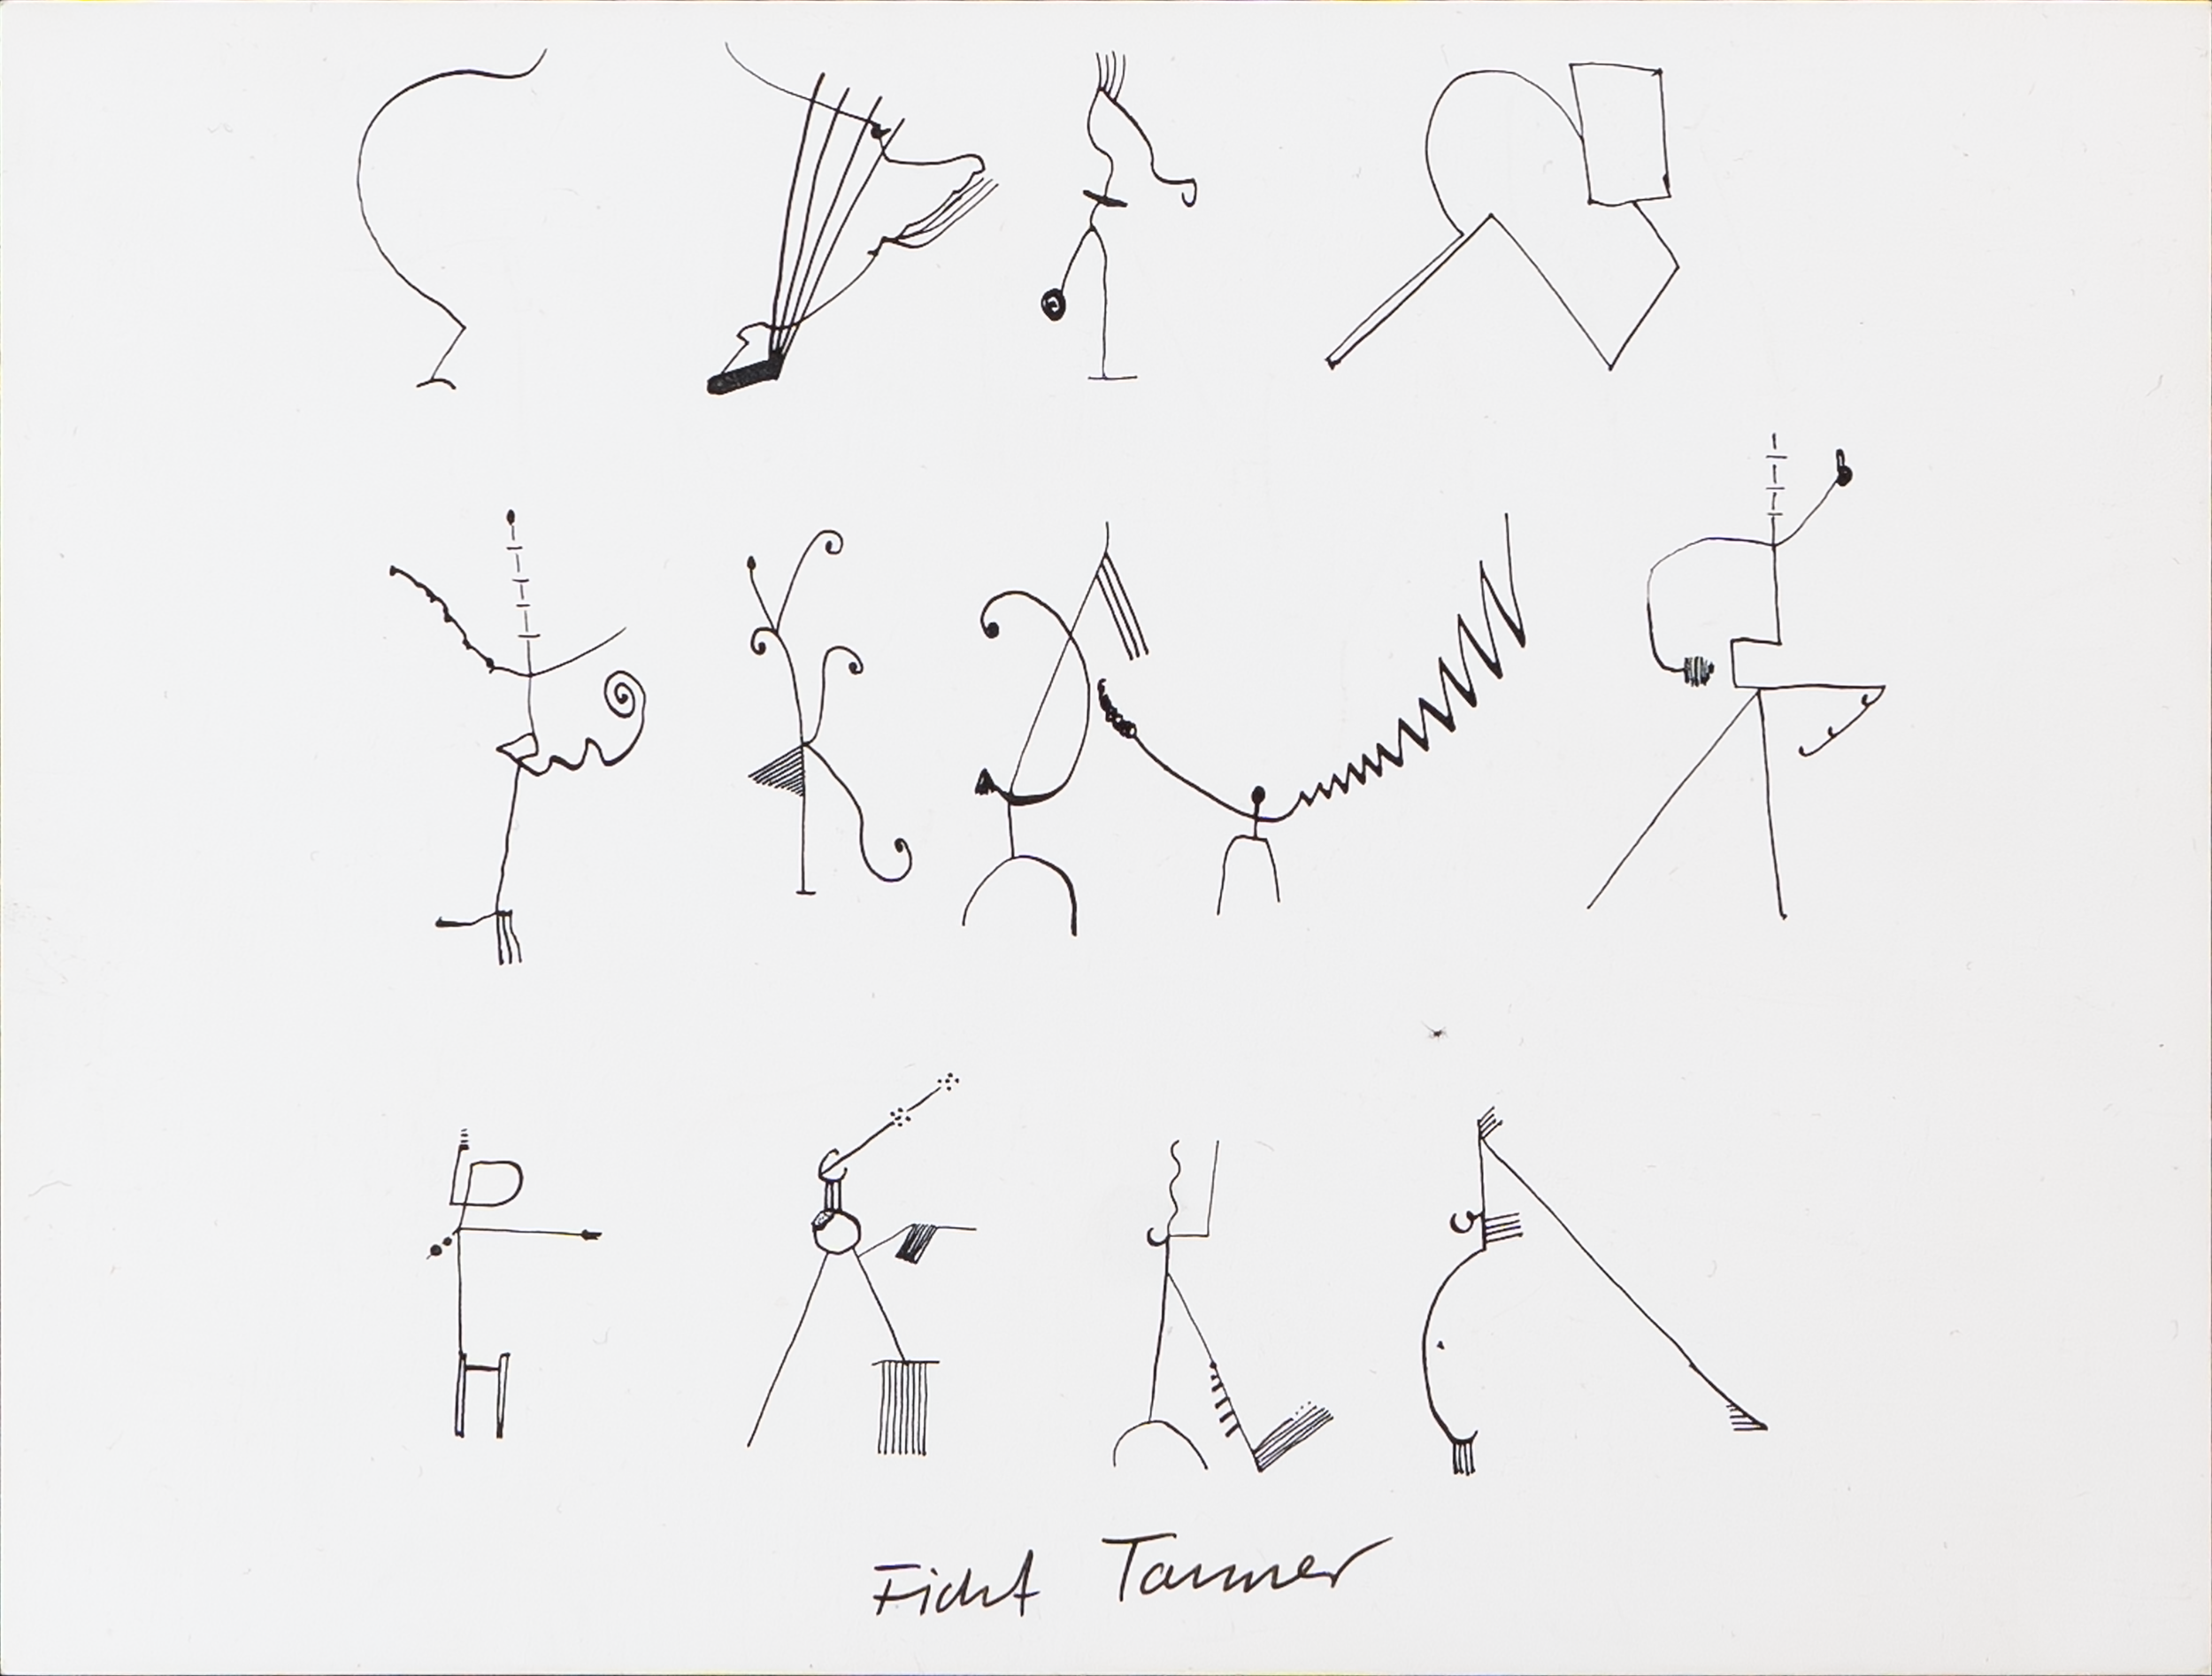 Ficht Tanner